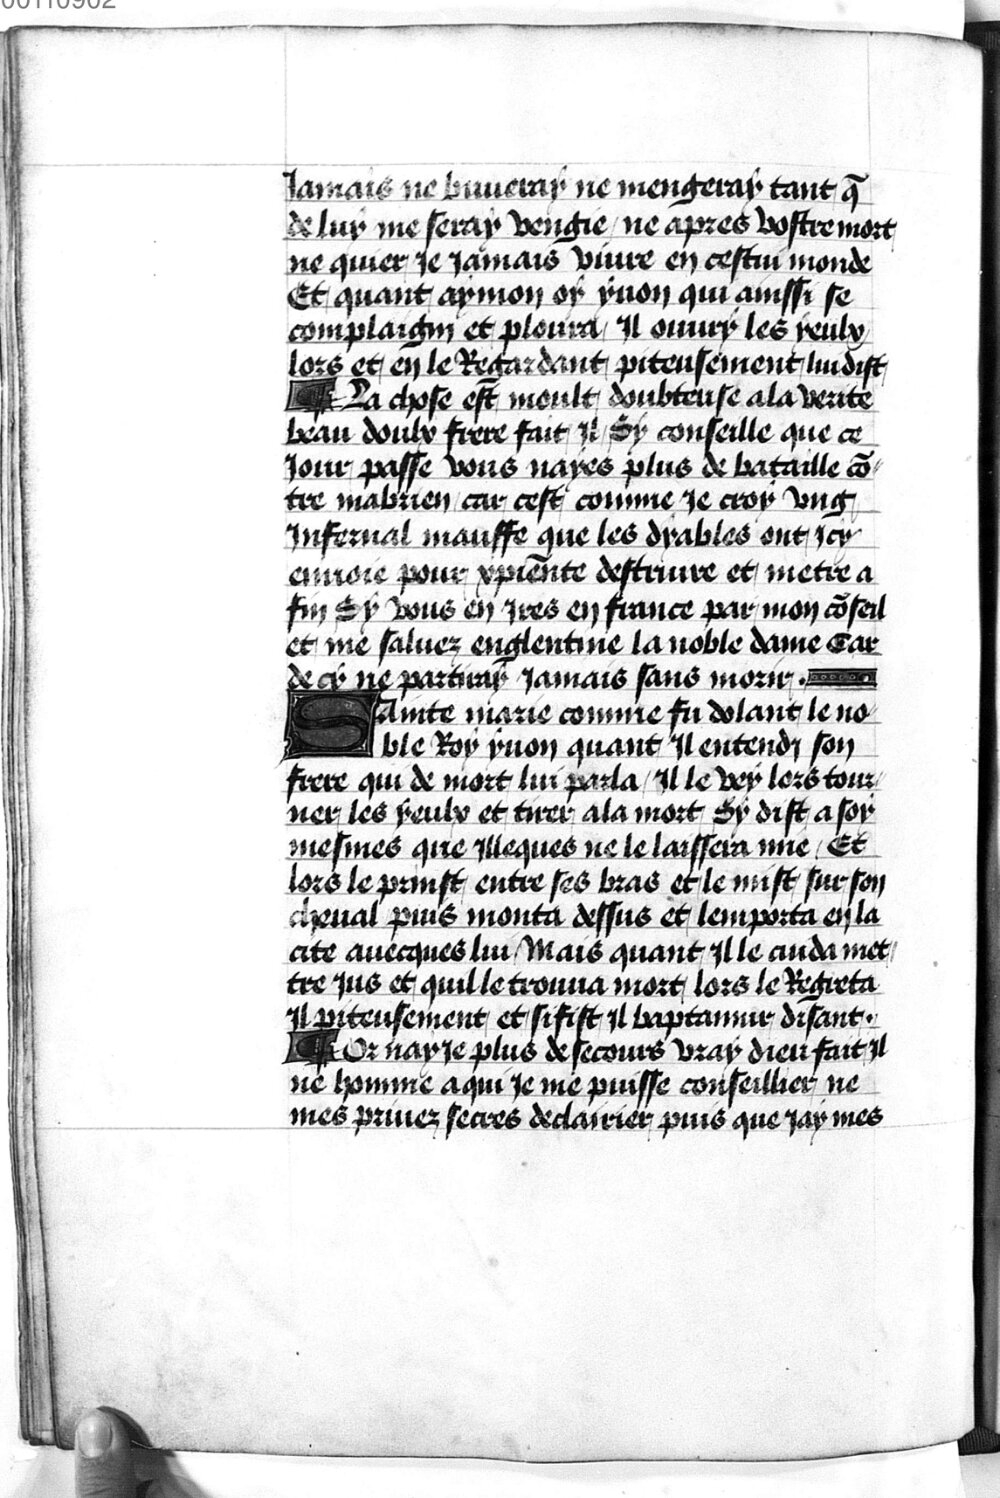 00110902
Jamais ne buueray ne mengeray tant q̄
de luy me seray vengie / ne apres vostre mort
ne quier je jamais viure en cestui monde
Et quant aymon oy yuon qui ainssi se
complaigni et ploura / Il ouury les yeulx
lors et en le Regardant piteusement lui dist
¶ La chose est moult doubteuse a la verite
beau doulx frere fait Il / Sy conseille que ce
Jour passe vous nayes plus de bataille cō-
tre mabrien car cest comme je croy vng
Infernal mauffe que les dyables ont Icy
enuoie pour xpiente destruire et metre a
fin Sy vous en Jres en france par mon cōseil
et me saluez englentine la noble dame Car
de cy ne partiray Jamais sans morir .
Sainte marie comme fu dolant le no-
ble Roy yuon quant Il entendi son
frere qui de mort lui parla / Il le vey lors tour-
ner les yeulx et tirer a la mort Sy dist a soy
mesmes que Illeques ne le laissera mie / Et
lors le prinst entre ses bras et le mist sur son
cheual puis monta dessus et lemporta en la
cite auecques lui / Mais quant Il le cuida met-
tre jus et quil le trouua mort lors le Regreta
Il piteusement et si fist Il baptamur disant .
¶ Or nay je plus de secours vray dieu fait Il
ne homme a qui Je me puisse conseillier ne
mes priuez secres declairier puis que Jay mes